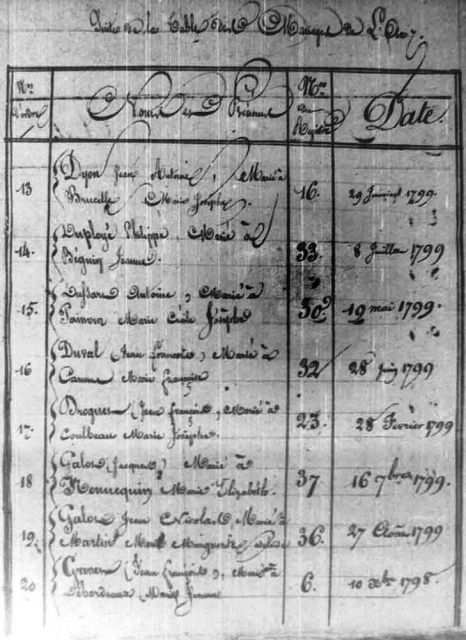 Suite de la Table des Mariages de L'An 7.
Nos
d'ordre
Noms et Prénoms
Nos
du
Registre
Date
13
Dyon Jean Antoine, Marié à
Brucelle Marie Josephe.
16.
29 Janvier 1799.
14.
Duployé Philippe, Marié à
Béguin Jeanne.
33.
8 Juillet 1799
15.
Dussart Antoine, Marié à
Marie Cécile Josèphe
30.
19 mai 1799.
16
Duval (Jean françois) Marié à
Marie françoise
32
28 Juin 1799
17.
(Jean françois, Marié à
Coulbeau Marie Josèphe.
23.
28 Février 1799
18
Galos (Jacques) Marié à
Hennequin Marie Elizabeth.
37
16 7bre 1799.
19.
Galos Jean Nicolas Marié à
Martin Marie
36.
27 Août 1799
20
(Jean françois), Marié à
Marie Jeanne
6.
10 Xbre 1798.